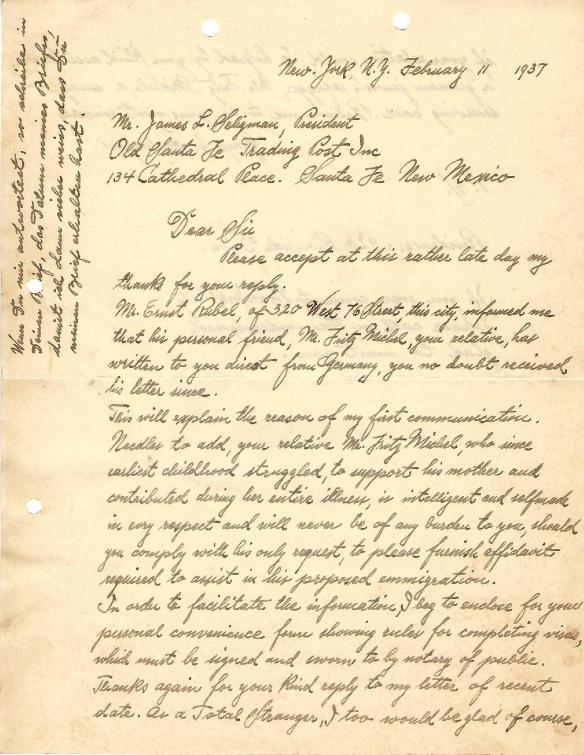 New-York, N.Y. February 11 1937
Mr. James L. Seligman, President
Old Santa Fe Trading Post Inc
134 Cathedral Place. Santa Fe New Mexico
Dear Sir
Please accept at this rather late day my
thanks for your reply.
Mr. Ernst Rubel, of 320 West 76 Street, this city, informed me
that his personal friend, Mr. Fritz Michel, your relative, has
written to you direct from Germany, you no doubt received
his letter since.
This will explain the reason of my first communication.
Needles to add, your relative Mr. Fritz Michel, who since
earliest childhood struggled, to support his mother and
contributed during her entire illness, is intelligent and selfmade
in very respect and will never be of any burden to you, should
you comply with his only request, to please furnish affidavit
required to assist in his proposed emmigration.
In order to facilitate the information, I beg to enclose for your
personal convenience form showing rules for completing visas,
which must be signed and sworn to by notary of public.
Thanks again for your kind reply to my letter of recent
date. As a Total Stranger, I too would be glad of course,
Wenn Du mir antwortest, so schreibe in
Deinen Brief, das Datum meines Briefes,
damit ich dann sicher weiss, dass Du
meinen Brief erhalten hast.